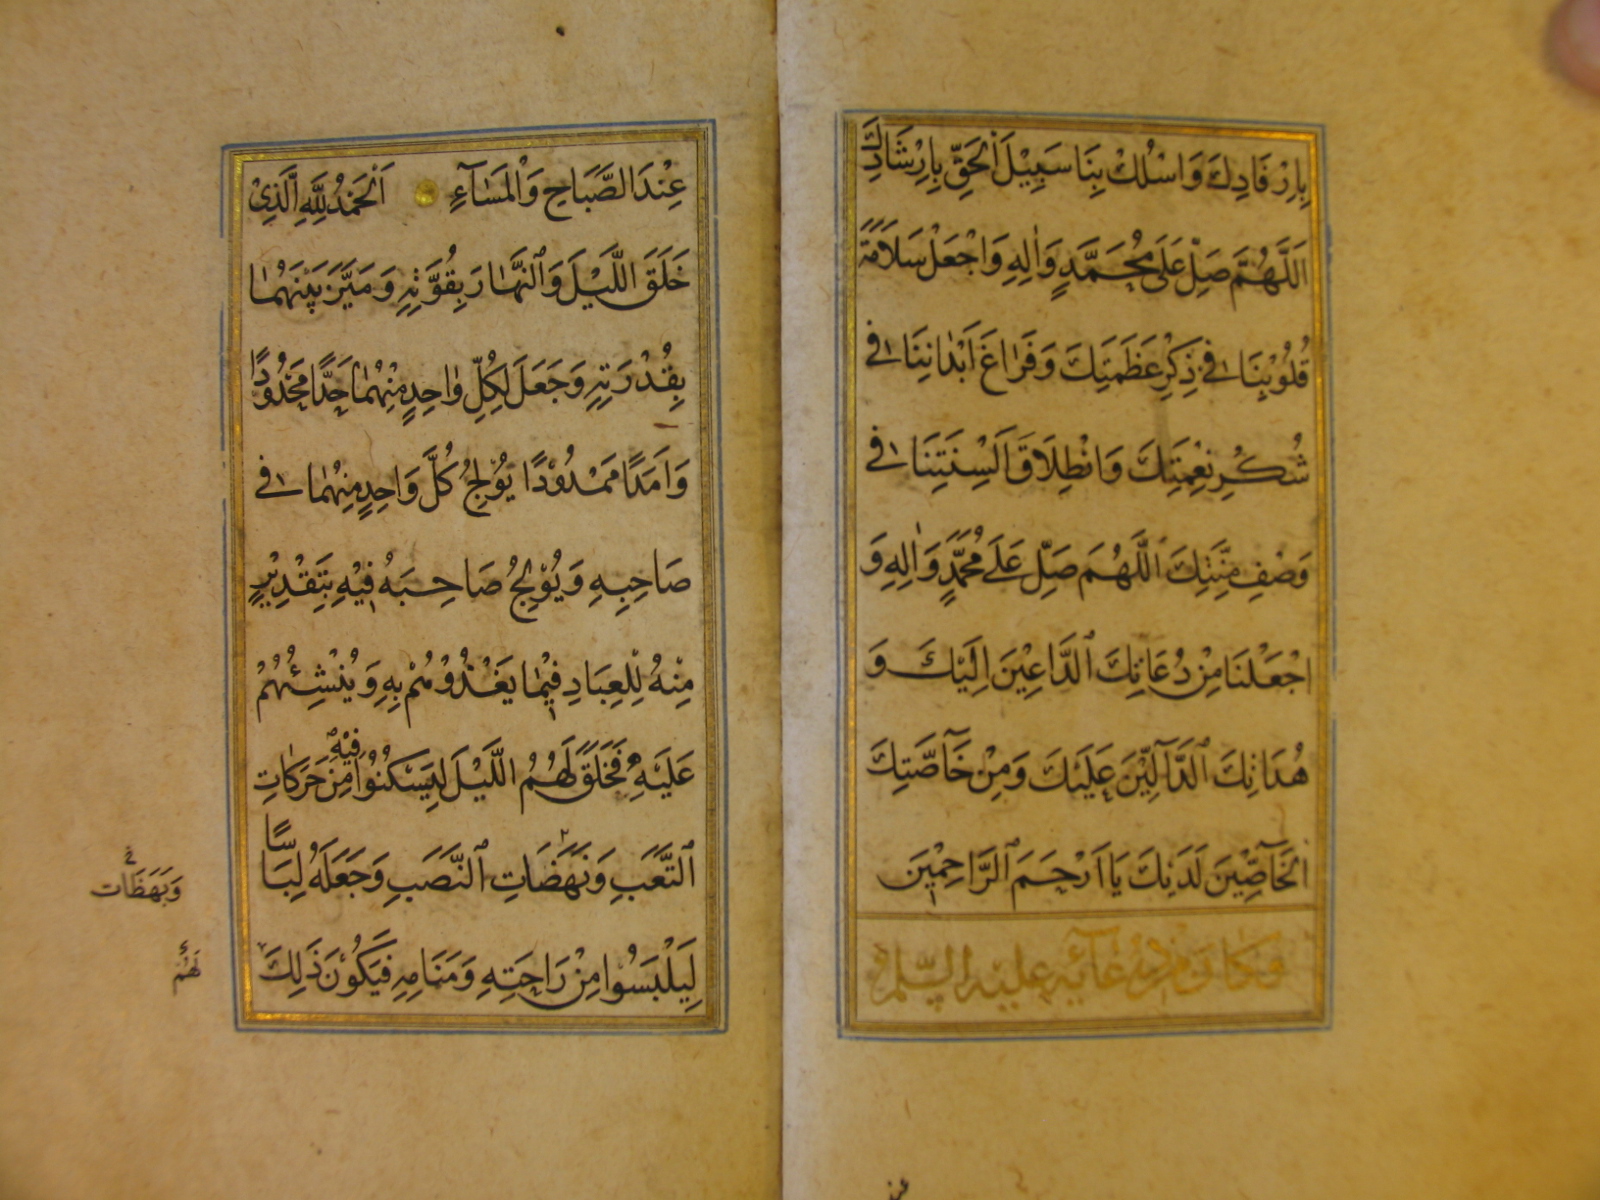 بِاِرْفَادِكَ وَاسْلُكْ بِنَا سَبِيْلَ الْحَقِّ بِاِرْشَادِكَ
اَللّٰهُمَّ صَلِّ عَلٰى مُحَمَّدٍ وَاٰلِهٖ وَاجْعَلْ سَلَامَةَ
قُلُوْبِنَا فِى ذِكْرِ عَظَمَتِكَ وَفَرَاغَ اَبْدَانِنَا فِى
شُكْرِ نِعْمَتِكَ وَانْطِلَاقَ اَلْسِنَتِنَا فِى
وَصْفِ مِنَّتِكَ اَللّٰهُمَّ صَلِّ عَلٰى مُحَمَّدٍ وَاٰلِهٖ وَ
اجْعَلْنَا مِنْ دُعَاتِكَ الدَّاعِيْنَ اِلَيْكَ وَ
هُدَاتِكَ الدَّآلِّيْنَ عَلَيْكَ وَمِنْ خَآصَّتِكَ
الْخَآصِّيْنَ لَدَيْكَ يَا اَرْحَمَ الرَّاحِمِيْنَ
وَكَانَ مِنْ دُعَآئِهٖ عَلَيْهِ السَّلَمُ
عِنْدَ الصَّبَاحِ وَالْمَسَآءِ اَلْحَمْدُ لِلّٰهِ الَّذِىْ
خَلَقَ اللَّيْلَ وَالنَّهَارَ بِقُوَّتِهٖ وَمَيَّزَ بَيْنَهُمَا
بِقُدْرَتِهٖ وَجَعَلَ لِكُلِّ وَاحِدٍ مِنْهُمَا حَدًّا مَحْدُوْدًا
وَاَمَدًا مَمْدُوْدًا يُوْلِجُ كُلَّ وَاحِدٍ مِنْهُمَا فِى
صَاحِبِهٖ وَيُوْلِجُ صَاحِبَهُ فِيْهِ بِتَقْدِيْرٍ
مِنْهُ لِلْعِبَادِ فِيْمَا يَغْذُوْهُمْ بِهٖ وَيُنْشِئُهُمْ
عَلَيْهِ فَخَلَقَ لَهُمُ اللَّيْلَ لِيَسْكُنُوْا فِيْهِ مِنْ حَرَكَاتِ
التَّعَبِ وَنَهَضَاتِ النَّصَبِ وَجَعَلَهُ لِبَاسًا
لِيَلْبَسُوْا مِنْ رَاحَتِهٖ وَمَنَامِهٖ فَيَكُوْنَ ذٰلِكَ
وَبَهَظَات
لَهُمْ